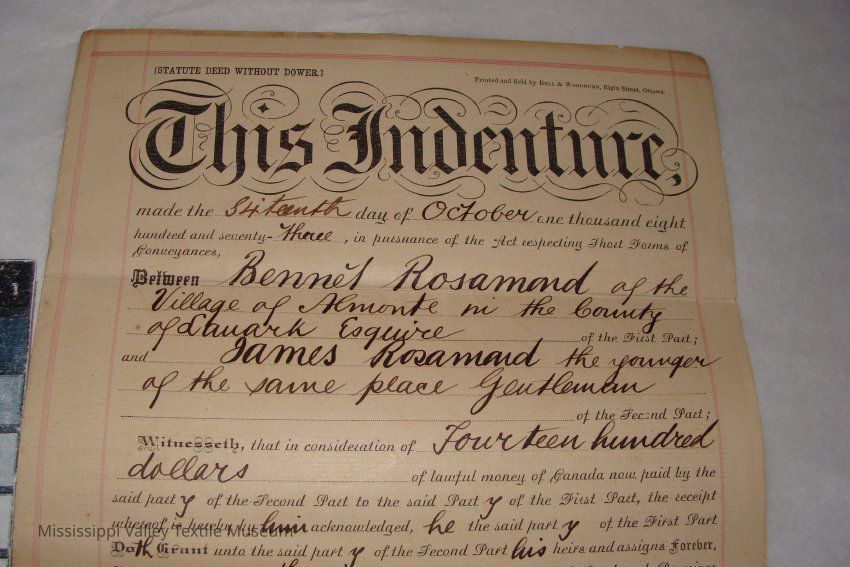 [STATUTE DEED WITHOUT DOWER.]
Printed and Sold by Bell & Woodburn, Elgin Street, Ottawa.
This Indenture,
made the Sixteenth day of October one thousand eight
hundred and seventy-three, in pursuance of the Act respecting Short Forms of
Conveyances,
Between Bennet Rosamond of the
Village of Almonte in the County
of Lanark Esquire of the First Part;
and James Rosamond the younger
of the same place Gentleman
of the Second Part;
Witnesseth, that in consideration of Fourteen hundred
dollars of lawful money of Canada now paid by the
said party of the Second Part to the said Party of the First Part, the receipt
whereof is hereby by him acknowledged, he the said party of the First Part
Doth Grant unto the said party of the Second Part his heirs and assigns Forever,
Mississippi Valley Textile Museum